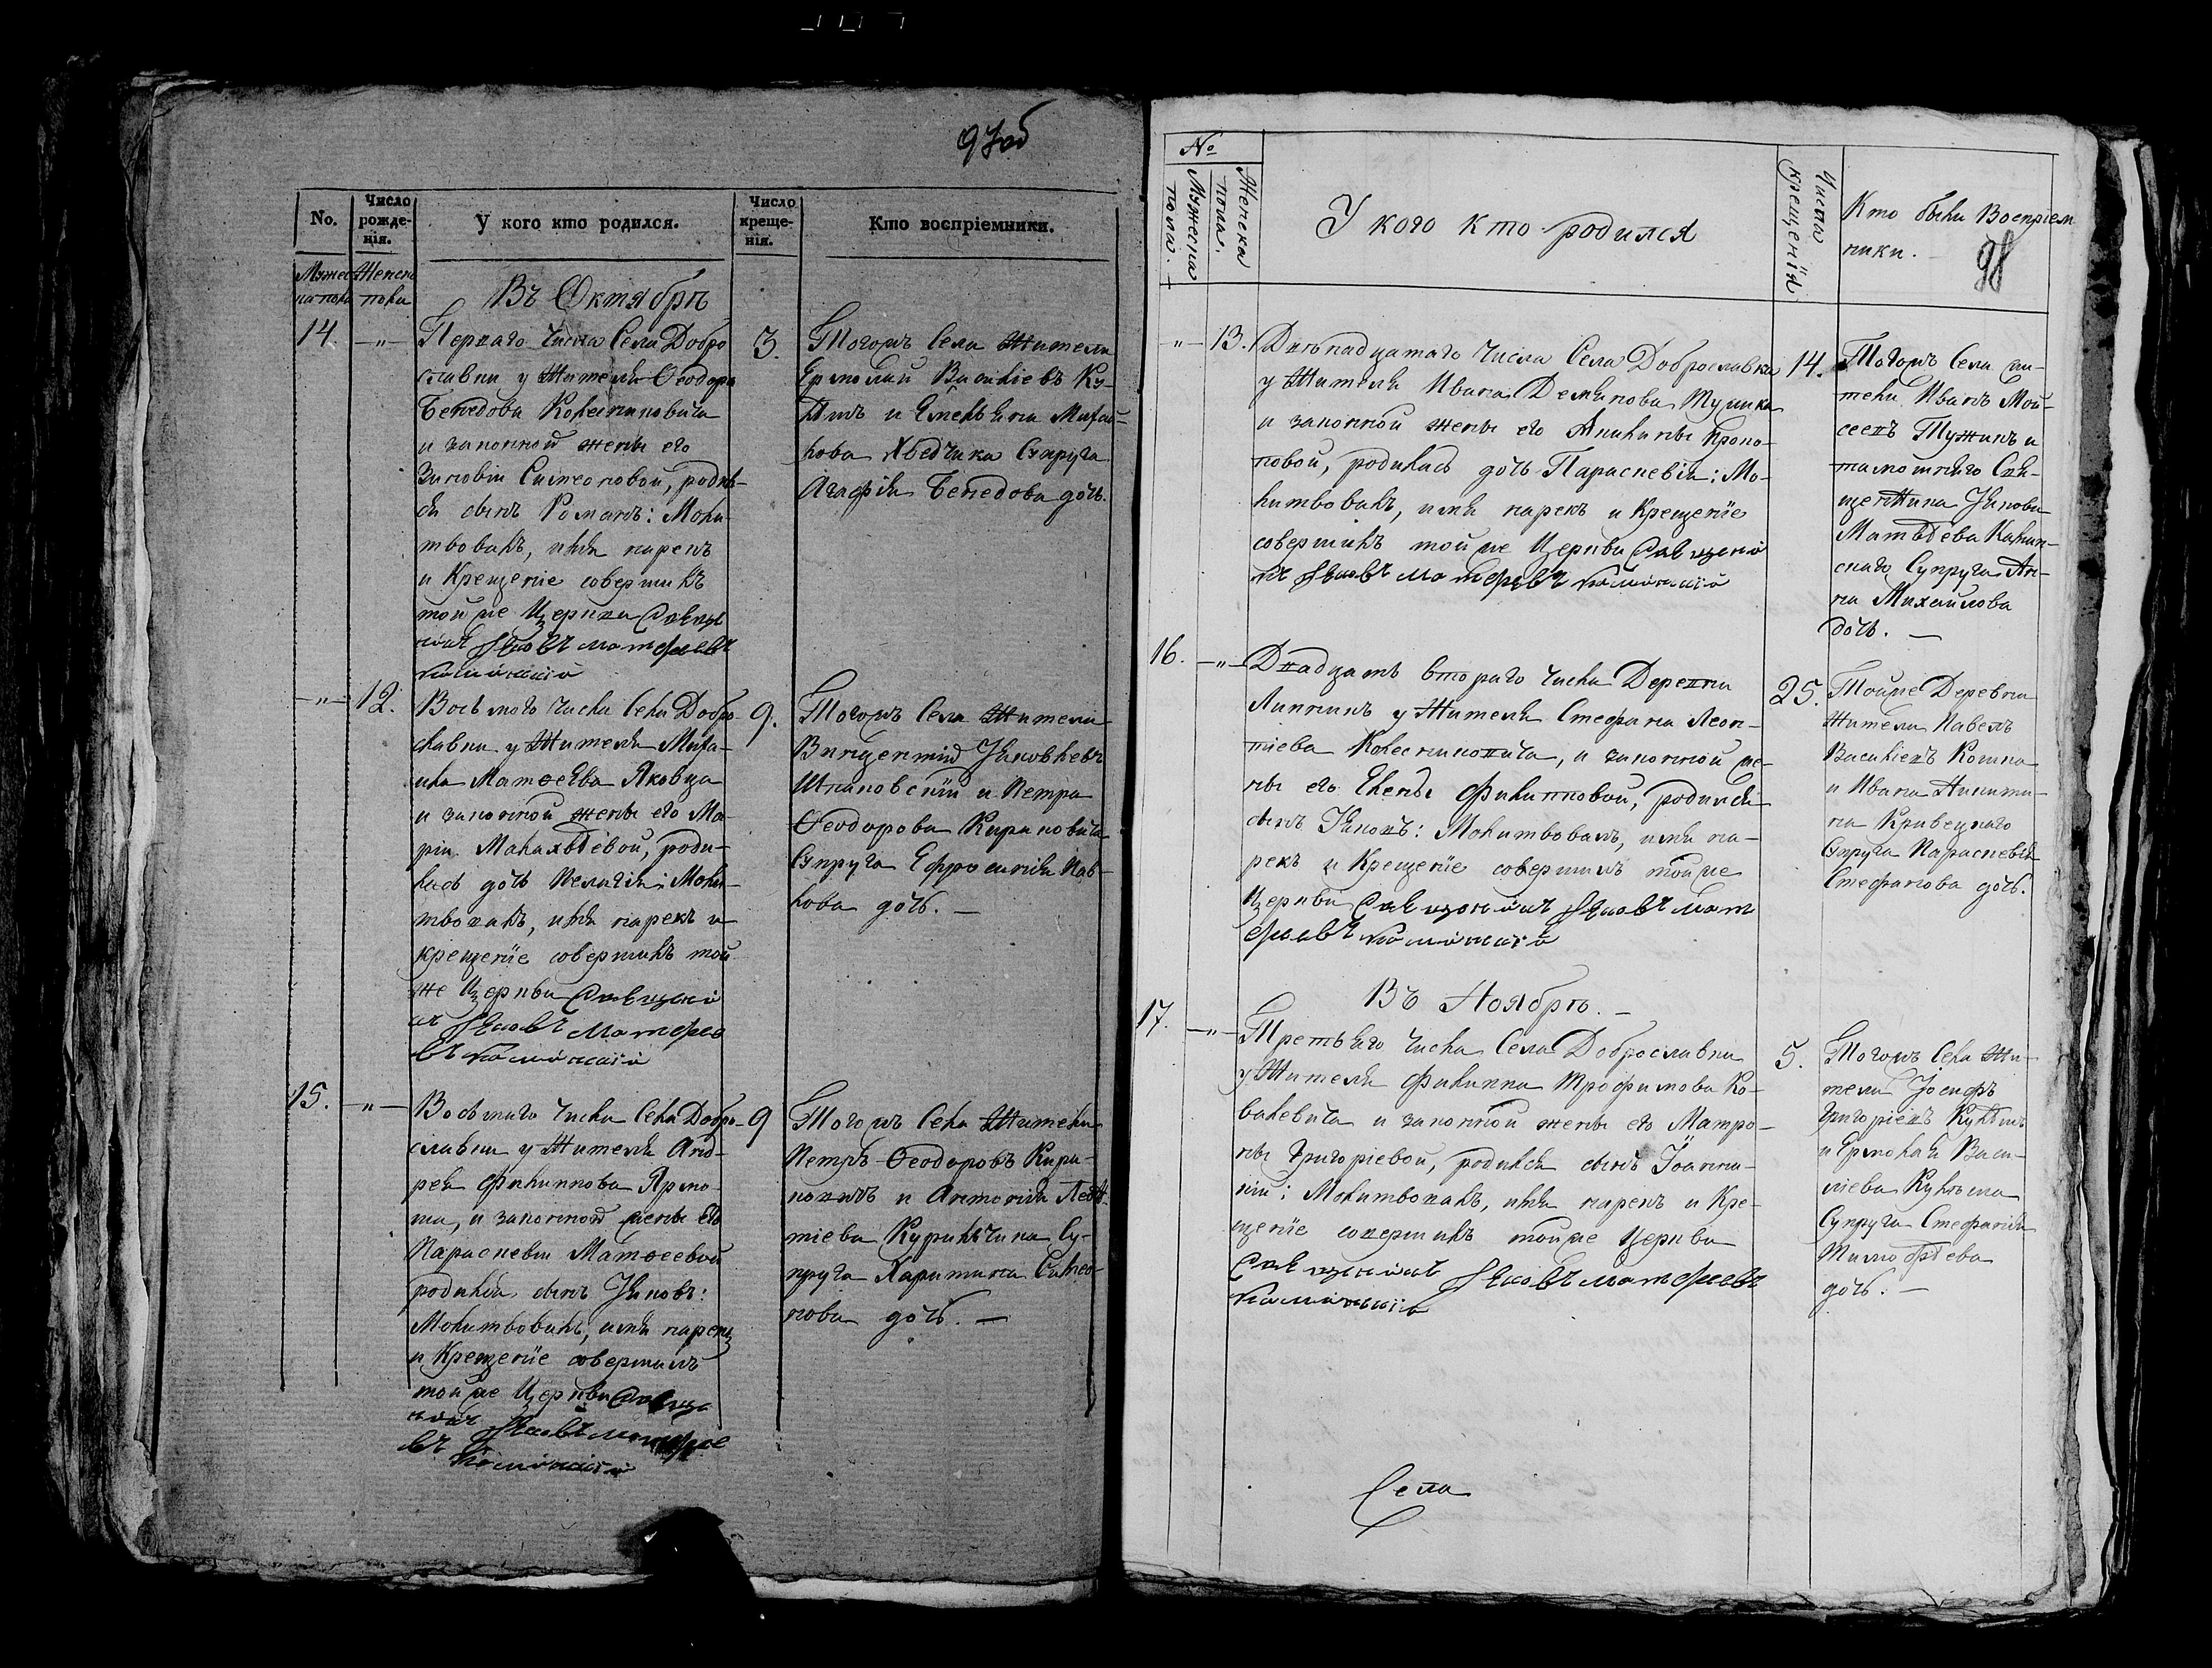 97об
No.
Число рожде-нія.
У кого кто родился.
Число креще-нія.
Кто воспріемники.
Мужес-
ка пола
Женска
пола
Въ Октябрѣ
14.
—„—
Перваго числа Села Добро
славки у Жителя Ѳеодора
Бенедова Колесниковича
и законной жены его
Зиновіи Симеоновой, родил-
ся сынъ Романъ: Моли-
твовалъ, имя нарекъ
и Крещеніе совершилъ
той же Церкви Священ
никъ Яковъ Матфеевъ
Калинскій
3.
Тогожъ Села Жители
Ермолай Васильевъ Ку-
и Емельяна Михай-
лова Хведчика Супруга
Агафія Бенедова дочь.
—„—
12.
Восьмого числа Села Добро
славки у Жителя Миха-
ила Матѳеева Яковца
и законной жены его Ма-
ріи Малахвѣевой, роди-
лась дочь Пелагія: Моли-
твовалъ, имя нарекъ и
крещеніе совершилъ той
же Церкви Священни
къ Яковъ Матфее
въ Калинскій
9.
Тогожъ Села Жители
Викентій Яковлевъ
и Петра
Ѳеодорова Кирановича
Супруга Ефросинія Пав-
лова дочь. —
15.
—„—
Восьмаго числа Села Добро-
славки у Жителя Анд-
рея Филиппова Ярмо-
ша, и законной жены его
Параскевіи Матѳеевой
родился сынъ Яковъ:
Молитвовалъ, имя нарекъ
и Крещеніе совершилъ
той же Церкви Свяще
никъ Яковъ Матфее
въ Калинскій
9
Тогожъ Села Жители
Петръ Ѳеодоровъ Кира-
новичъ и Антонія Леон-
тіева Курильчика Су-
пруга Харитина Симео-
нова дочь. —
No
Мужеска
пола.
Женска
пола.
У кого кто родился
Числа
крещенія
Кто были Воспріем
ники. —
98
—„—
13.
Двѣнадцатаго Числа Села Доброславки
у Жителя Ивана Демянова Тушика
и законной жены его Акилины
новой, родилась дочь Параскевія: Мо-
литвовалъ, имя нарекъ и Крещеніе
совершилъ той же Церкви Священни
къ Яковъ Матфеевъ Калинскій
14.
Тогожъ Села жи-
тели Иванъ Мои-
сеевъ Тужикъ и
тамошняго Свя-
щенника Якова
Матвѣева Калин-
скаго Супруга Ан-
на Михайлова
дочь. —
16.
—„—
Двадцать втораго числа Деревни
Липникъ у Жителя Стефана Леон-
тіева Колесниковича, и законной же-
ны его Елены Филипповой, родился
сынъ Яковъ: Молитвовалъ, имя на-
рекъ и Крещеніе совершилъ той же
Церкви Священникъ Яковъ Мат
феевъ Калинскій
25.
Тойже Деревни
Жители Павелъ
Васильевъ Кошка
и Ивана Никити-
на Кривецкаго
Супруга Параскевія
Стефанова дочь.
Въ Ноябрѣ. —
17.
—„—
Третьяго числа Села Доброславки
у Жителя Филиппа Трофимова Ко-
валевича и законной жены его Матро-
ны Григоріевой, родился сынъ Іоанни-
кій: Молитвовалъ, имя нарекъ и Кре-
щеніе совершилъ той же Церкви
Священникъ Яковъ Матфеевъ
Калинскій
5.
Тогожъ Села Жи-
тели Іосифъ
Григоріевъ
и Ермолая Васи-
лиева
Супруга Стефанія
Тимофѣева
дочь. —
Села